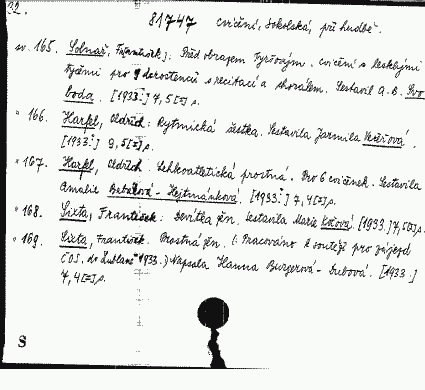 32.
81747 cvičení, sokolská, při hudbě.
sv. 165. Solnař, František: Před obrazem Tyršovým. cvičení s lesklými
tyčemi pro 9 dorostenců s recitací a chorálem. Sestavil A. B. Svo
boda. [1933.] 4, 5 [=] s.
" 166. Harfl, Oldřich: Rytmická šestka. Sestavila Jarmila
[1933.] 9, 5 [=] s.
" 167. Harfl, Oldřich. Lehkoatletická prostná. Pro 6 cvičenek. Sestavila
Amalie Hejtmánková. [1933.] 7, 4 [=] s.
" 168. Sixta, František: Devítka žen. Sestavila Marie Kočová. [1933.] 7, 5 [=] s.
" 169. Sixta, František. Prostná žen. (Pracováno k soutěži pro zájezd
ČOS. do Lublaně 1933.) Napsala Hanna Burgerová-Dubová. [1933.]
7, 4 [=] s.
S